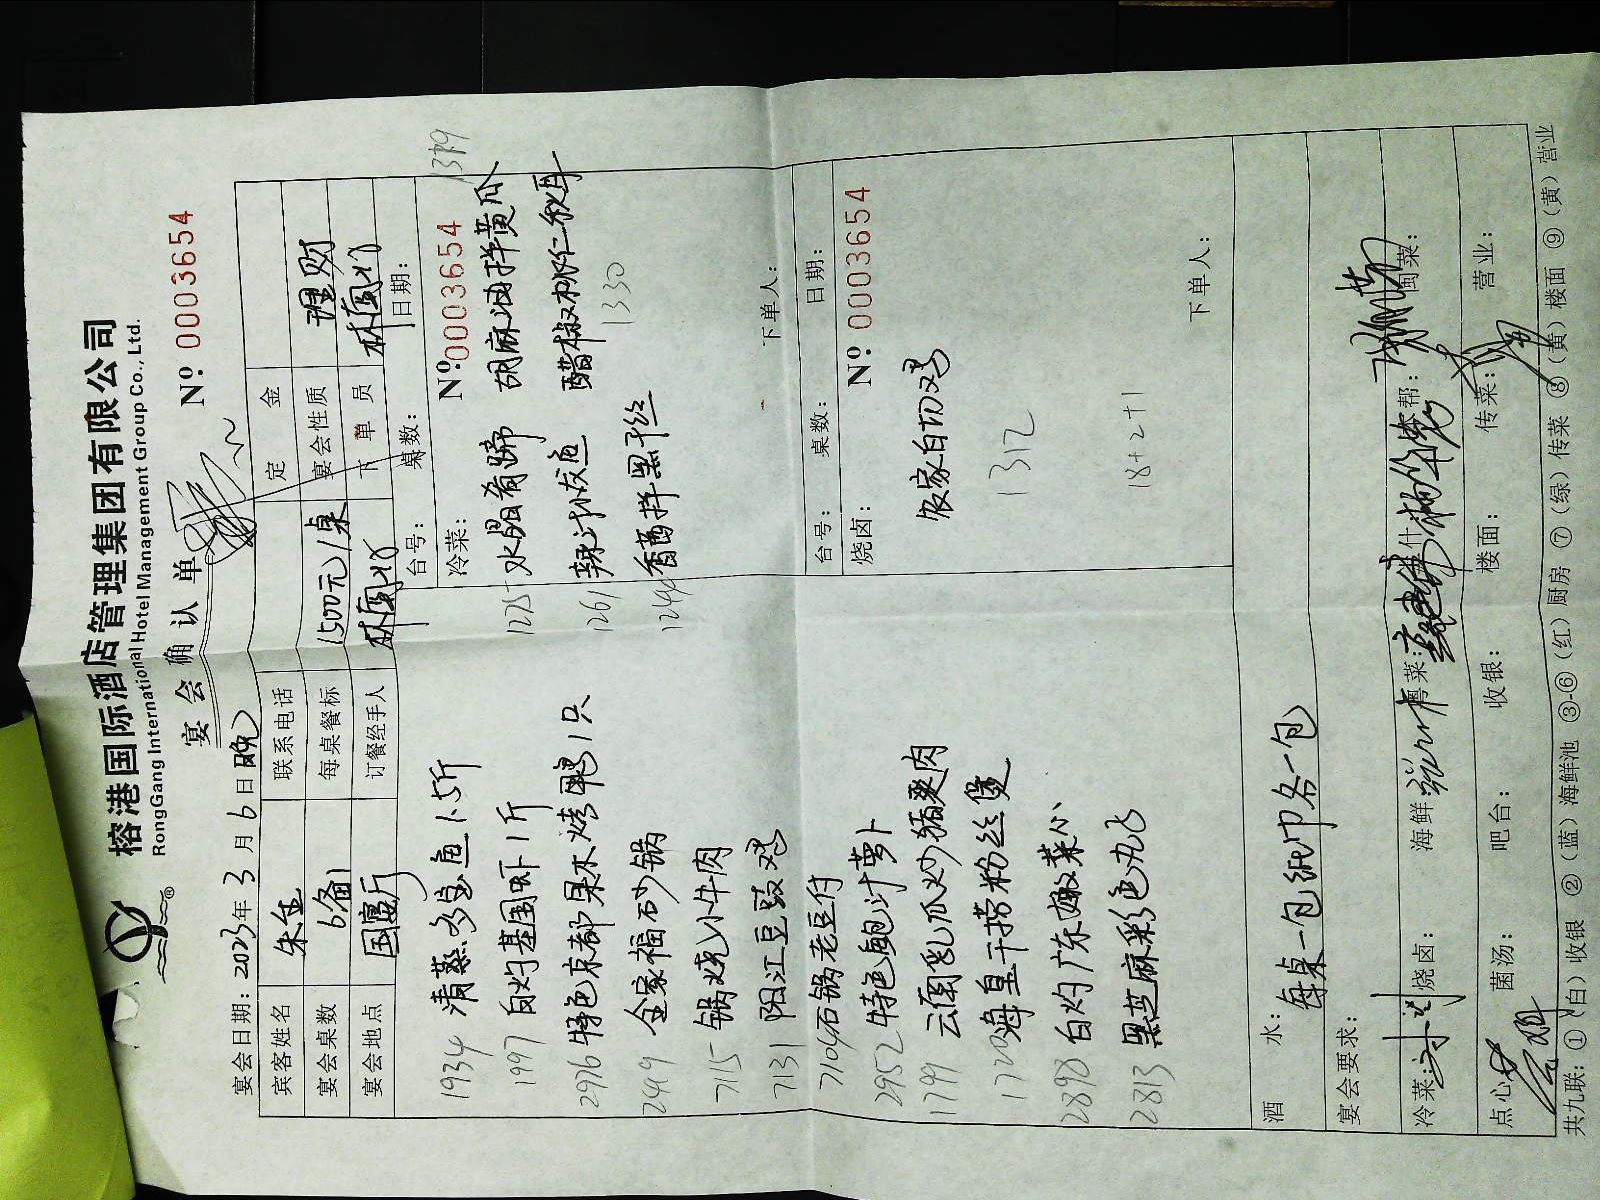 榕港国际酒店管理集团有限公司
RongGang International Hotel Management Group Co., Ltd.
宴会确认单
№ 0003654
宴会日期：2023年3月6日晚
宾客姓名 朱生 联系电话 定金
宴会桌数 6备1 每桌餐标 1500元/桌 宴会性质 理财
宴会地点 国宴厅 订餐经手人 下单员
1934 清蒸多宝鱼1.5斤
1997 白灼基围虾1斤
2976 特色京都果木烤鸭1只
2949 全家福砂锅
7115 锅烧小牛肉
7131 阳江豆豉鸡
7104 石锅老豆付
2952 特色鲍汁萝卜
1799 云南乳瓜炒猪爽肉
1720 海皇干捞粉丝煲
2890 白灼广东嫩菜心
2813 黑芝麻彩色丸子
台号： 桌数： 日期：
冷菜： №0003654 1379
1275 水晶肴蹄 胡麻油拌黄瓜
1261 辣汁伙鱼 醋椒桃仁秋耳
1244 香茜拌黑干丝 1330
下单人：
台号： 桌数： 日期：
烧卤： № 0003654
农家白切鸡
1312
18+2+1
下单人：
酒水： 每桌一包纸巾各一包
宴会要求：
冷菜： 烧卤： 海鲜 粤菜： 什 帮： 闽菜：
点心 菌汤： 吧台： 收银： 楼面： 传菜： 营业：
共九联：①（白）收银 ②（蓝）海鲜池 ③-⑥（红）厨房 ⑦（绿）传菜 ⑧（黄）楼面 ⑨（黄）营业